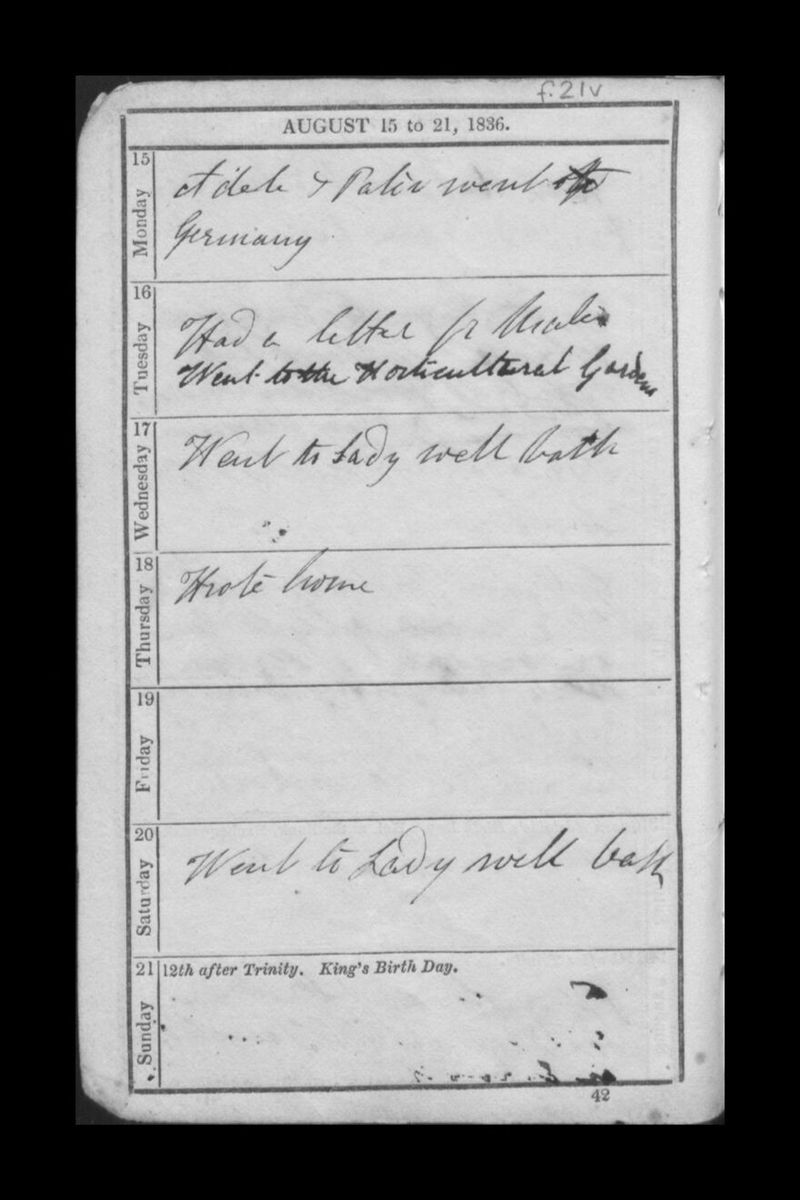 f.21v
AUGUST 15 to 21, 1836.
15 Monday
Adele & went to
Germany
16 Tuesday
Had a letter fr
Went to the Horticultural Gardens
17 Wednesday
Went to Lady well bath
18 Thursday
Wrote home
19 Friday
20 Saturday
Went to Lady well bath
21 Sunday
12th after Trinity. King's Birth Day.
42